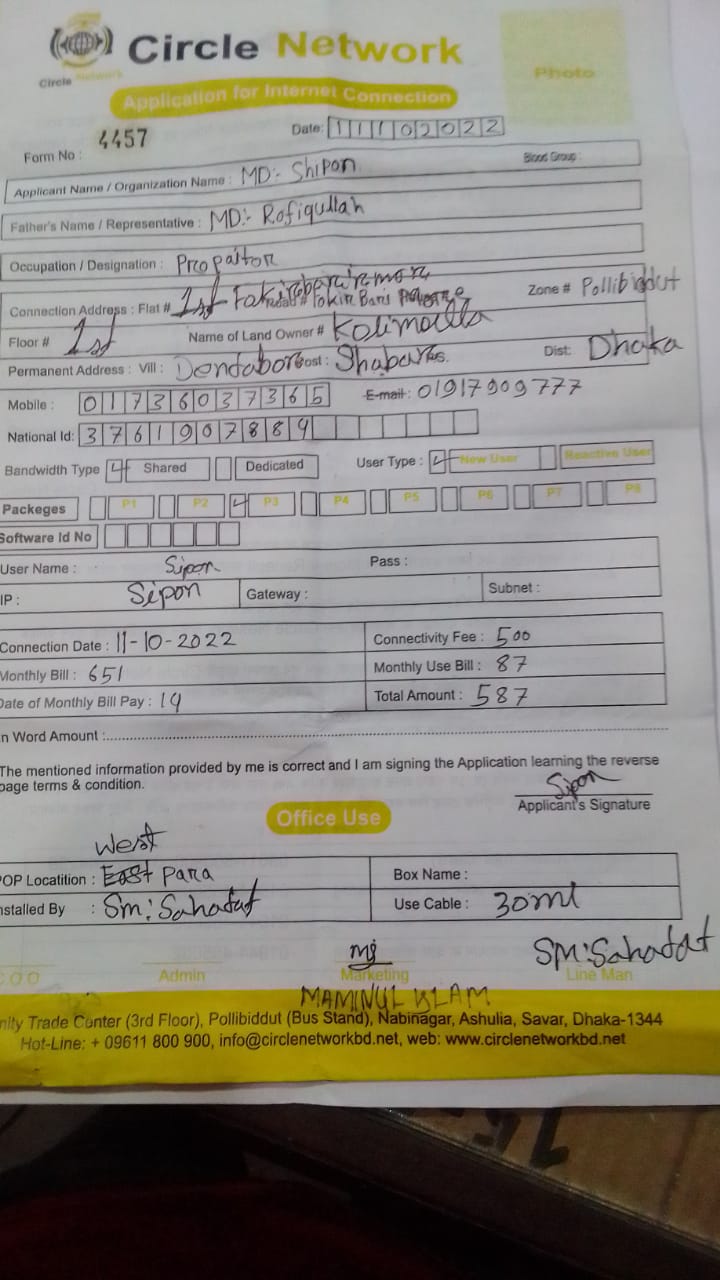 Circle Network
Circle Network
Photo
Application for Internet Connection
Form No : 4457
Date: 11102022
Applicant Name / Organization Name : MD:- Shipon
Blood Group :
Father's Name / Representative : MD:- Rofiqullah
Occupation / Designation : Propaitor
Connection Address : Flat # 1st
Zone # Pollibiddut
Floor # 1st
Name of Land Owner # Kolimolla
Permanent Address : Vill : Dendabor Post : Shabar Ps.
Dist: Dhaka
Mobile : 01736037365
E-mail : 01917909777
National Id: 3761907884
Bandwidth Type Shared Dedicated User Type : New User Reactive User
Packeges P1 P2 P3 P4 P5 P6 P7 P8
Software Id No
User Name : Sipon Pass :
IP : Sipon Gateway : Subnet :
Connection Date : 11-10-2022 Connectivity Fee : 500
Monthly Bill : 651 Monthly Use Bill : 87
Date of Monthly Bill Pay : 14 Total Amount : 587
n Word Amount :
The mentioned information provided by me is correct and I am signing the Application learning the reverse
page terms & condition.
Sipon
Applicant's Signature
Office Use
West
POP Locatition : East Para Box Name :
nstalled By : Sm: Sahadat Use Cable : 30ml
SM: Sahadat
COO Admin Marketing Line Man
MAMINUL ISLAM
nity Trade Center (3rd Floor), Pollibiddut (Bus Stand), Nabinagar, Ashulia, Savar, Dhaka-1344
Hot-Line: + 09611 800 900, info@circlenetworkbd.net, web: www.circlenetworkbd.net